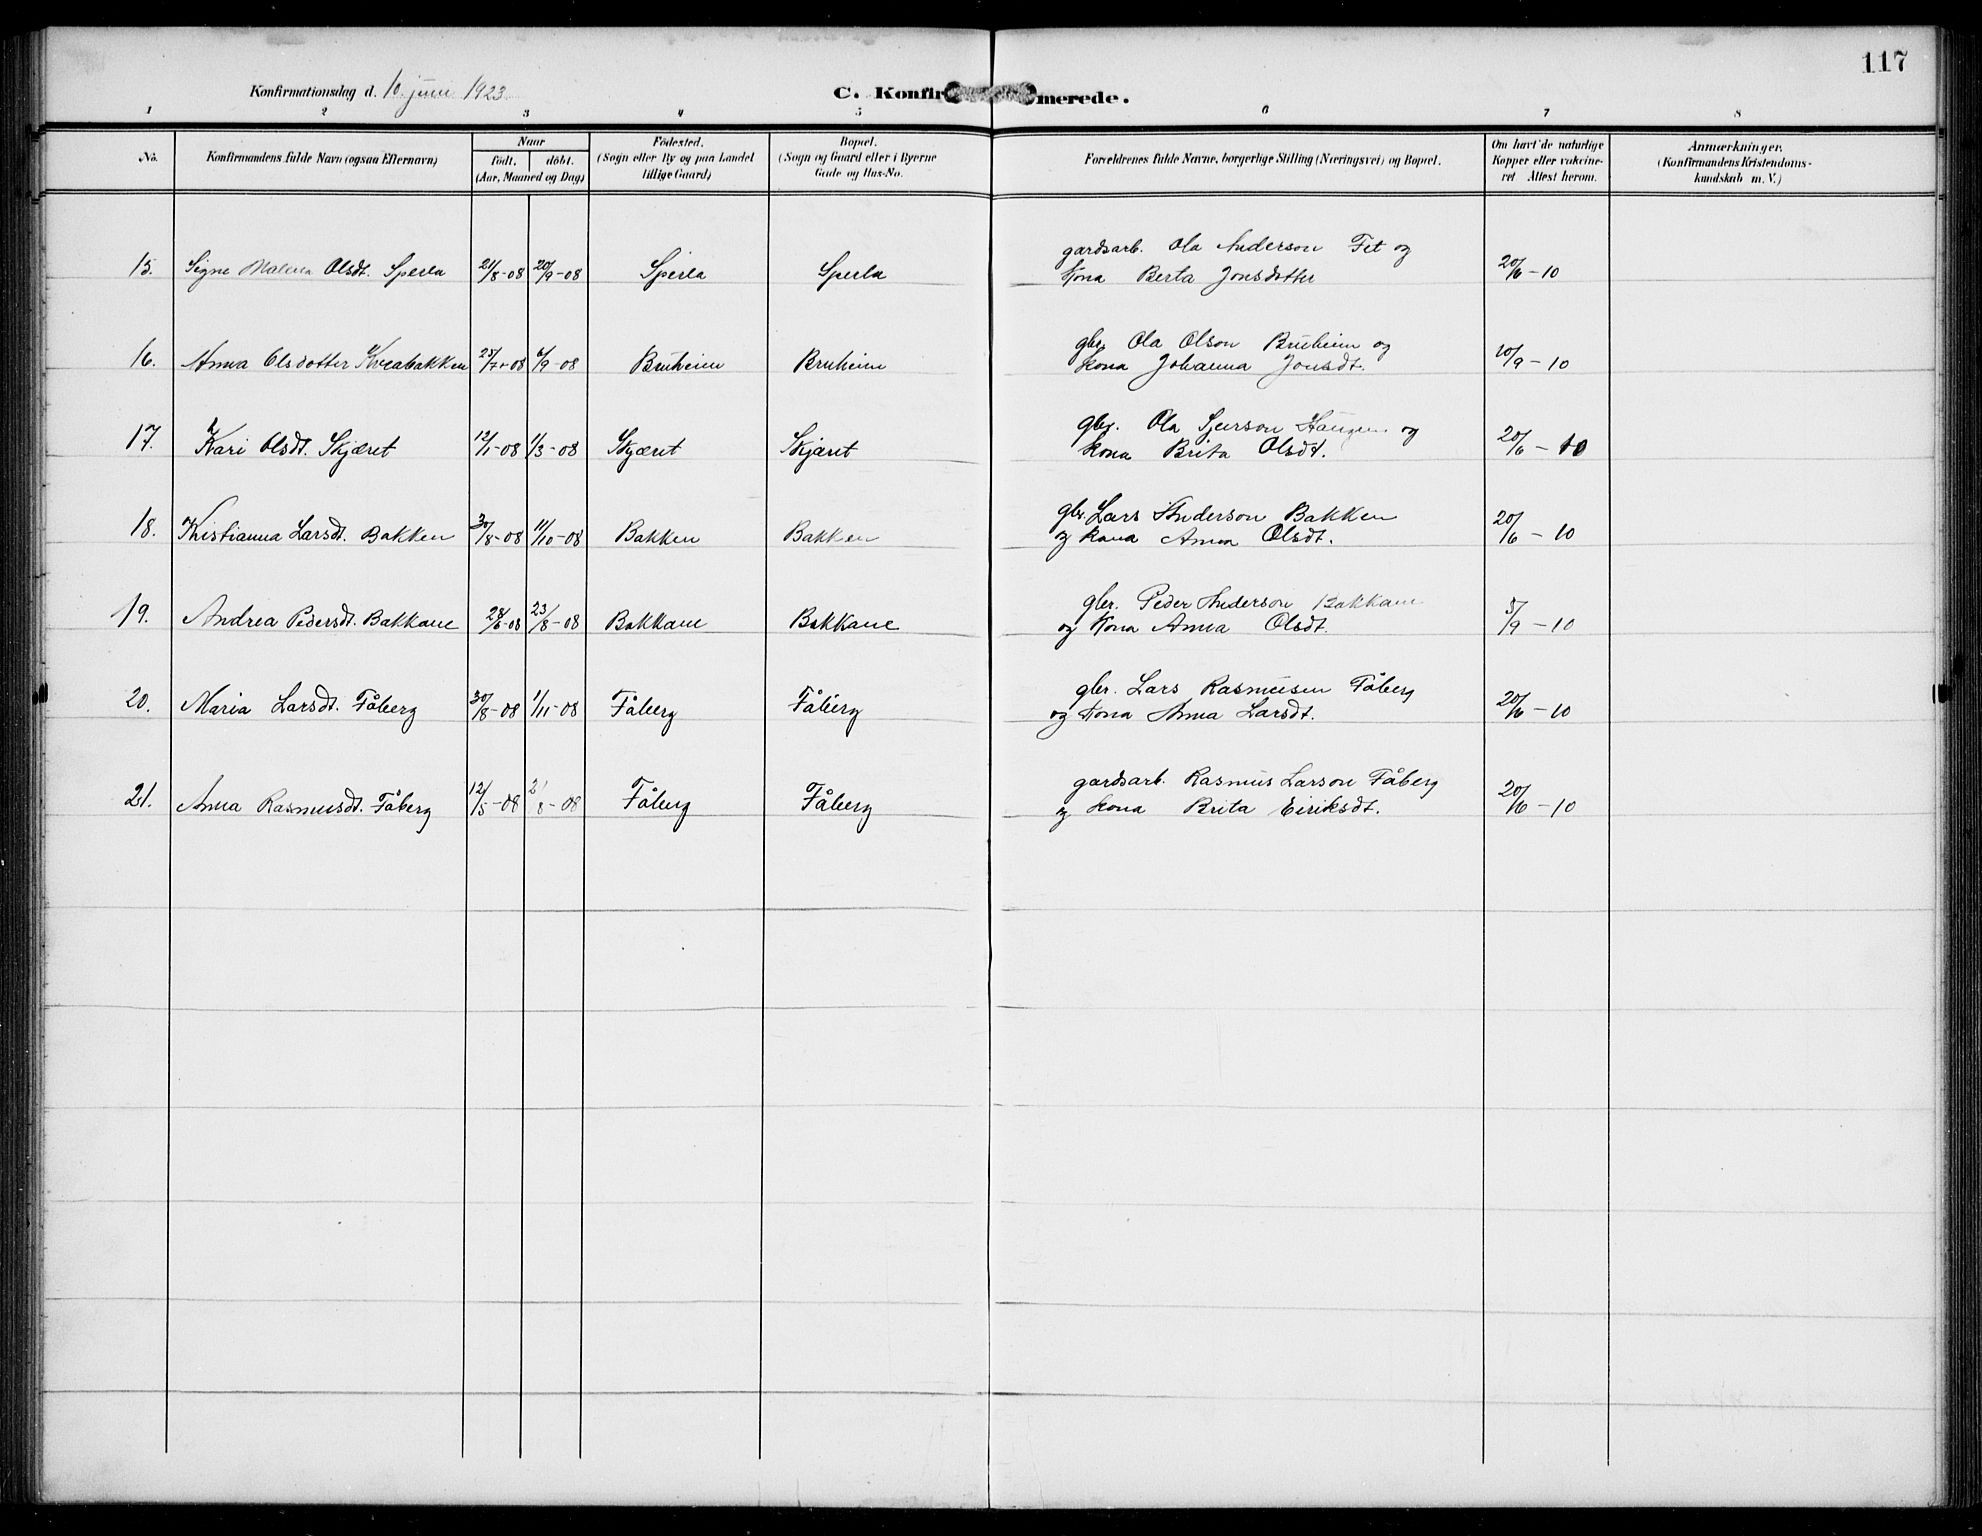 117
Konfirmationsdag d. 10. juni 1923
C. Konfir merede.
1 2 3 4 5 6 7 8
No.
Konfirmandens fulde Navn (ogsaa Efternavn)
Naar
født. døbt.
(Aar, Maaned og Dag)
Fødested.
(Sogn eller By og paa Landet
tillige Gaard)
Bopæl.
(Sogn og Gaard eller i Byerne
Gade og Hus-No.
Forældrenes fulde Navne, borgerlige Stilling (Næringsvei) og Bopæl.
Om havt de naturlige
Kopper eller vakcine-
ret Attest herom.
Anmærkninger.
(Konfirmandens Kristendoms-
kundskab m. V.)
gardsarb. Ola Anderson Fet og
15. Signe Malena Olsdt. Sperla 21/8-08 20/9-08 Sperla Sperla kona Berta Jonsdotter 20/6-10
gbr. Ola Olson Bruheim og
16. Anna Olsdotter Kveabakken 25/7-08 6/9-08 Bruheim Bruheim kona Johanna Jonsdt. 10/9-10
gbr. Ola Sjurson Haugen og
17. Kari Olsdt. Skjæret 12/1-08 1/3-08 Skjæret Skjæret kona Brita Olsdt. 20/6-10
gbr. Lars Anderson Bakken
18. Kristianna Larsdt. Bakken 30/8-08 11/10-08 Bakken Bakken og kona Anna Olsdt. 20/6-10
gbr. Peder Anderson Bakkane
19. Andrea Pedersdt. Bakkane 28/6-08 23/8-08 Bakkane Bakkane og kona Anna Olsdt. 5/9-10
gbr. Lars Rasmusen Fåberg
20. Maria Larsdt. Fåberg 30/8-08 1/11-08 Fåberg Fåberg og kona Anna Larsdt. 20/6-10
gardsarb. Rasmus Larson Fåberg
21. Anna Rasmusdt. Fåberg 12/5-08 8-08 Fåberg Fåberg og kona Brita Eiriksdt. 20/6-10